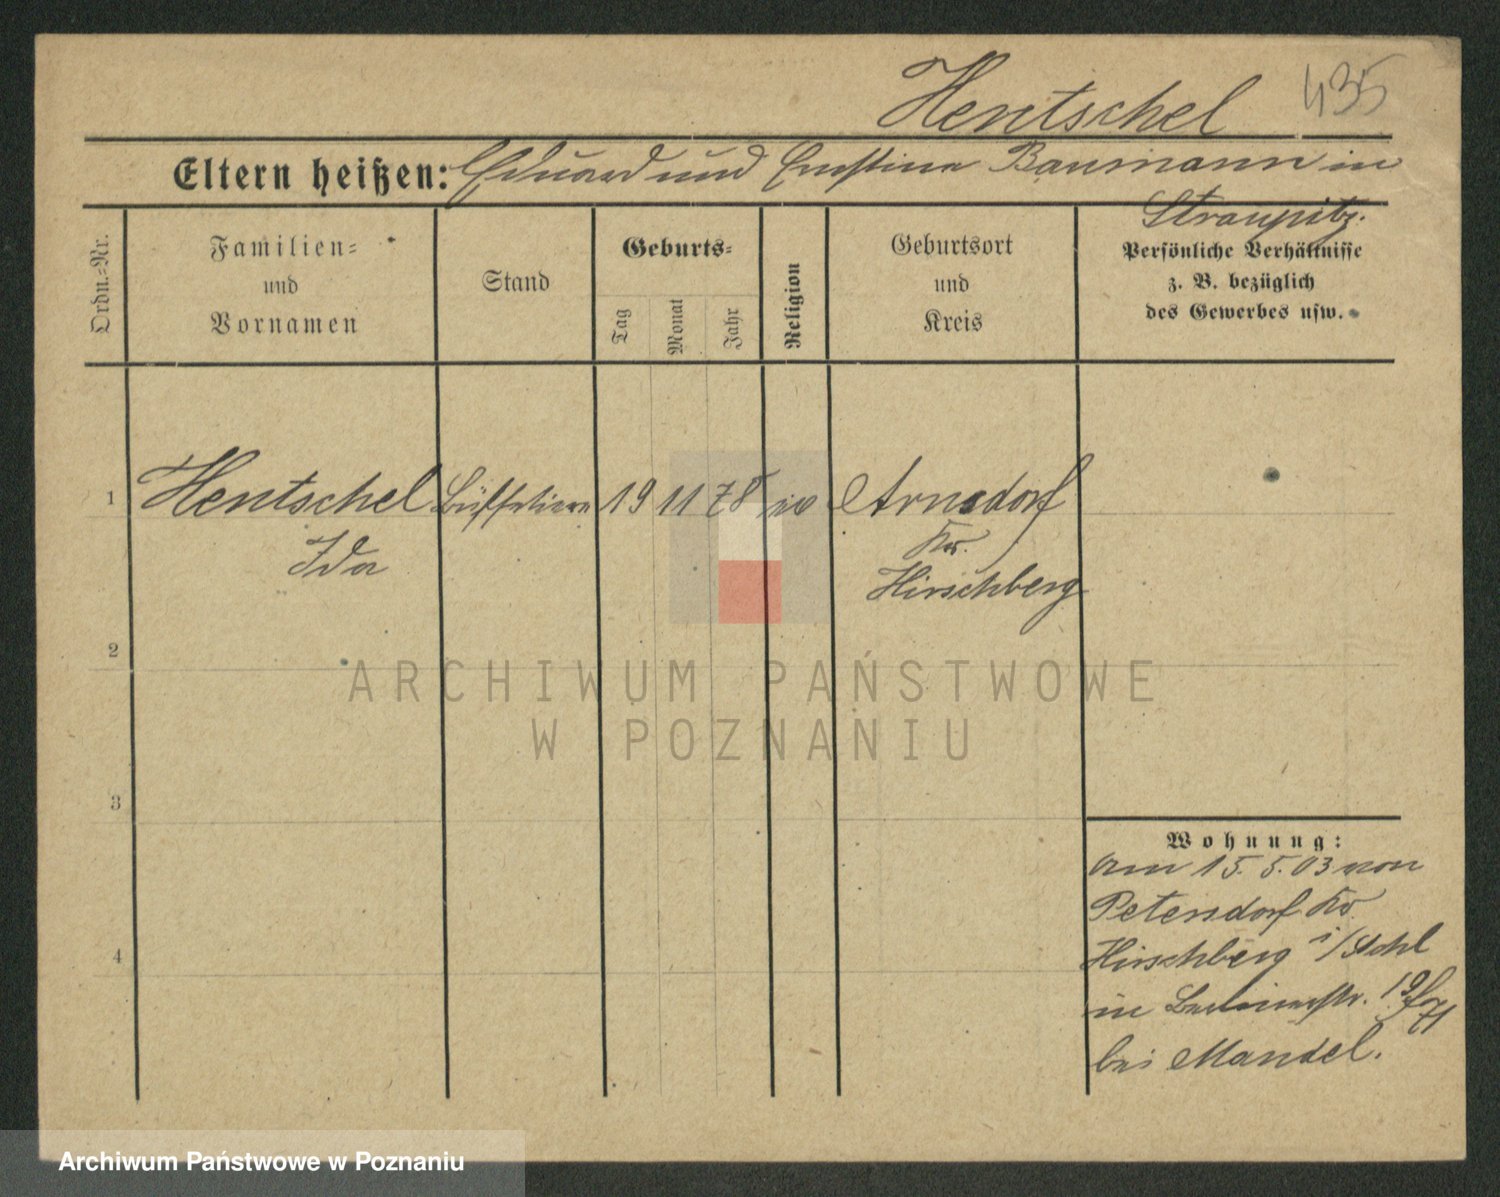 Hentschel 435
Eltern heißen: Eduard und Ernstine Baumann in
Straupitz.
Ordn.=Nr.
Familien=
und
Vornamen
Stand
Geburts=
Tag
Monat
Jahr
Religion
Geburtsort
und
Kreis
Persönliche Verhältnisse
z. B. bezüglich
des Gewerbes usw.
1 Hentschel Büffetiere 19 11 78 ev Arnsdorf
Ida
Kr.
Hirschberg
2
3
4
Wohnung:
am 15. 5. 03 von
Petersdorf Kr.
Hirschberg i/Schl
in Berlinerstr. 19
bei Mandel.
ARCHIWUM PAŃSTWOWE
W POZNANIU
Archiwum Państwowe w Poznaniu